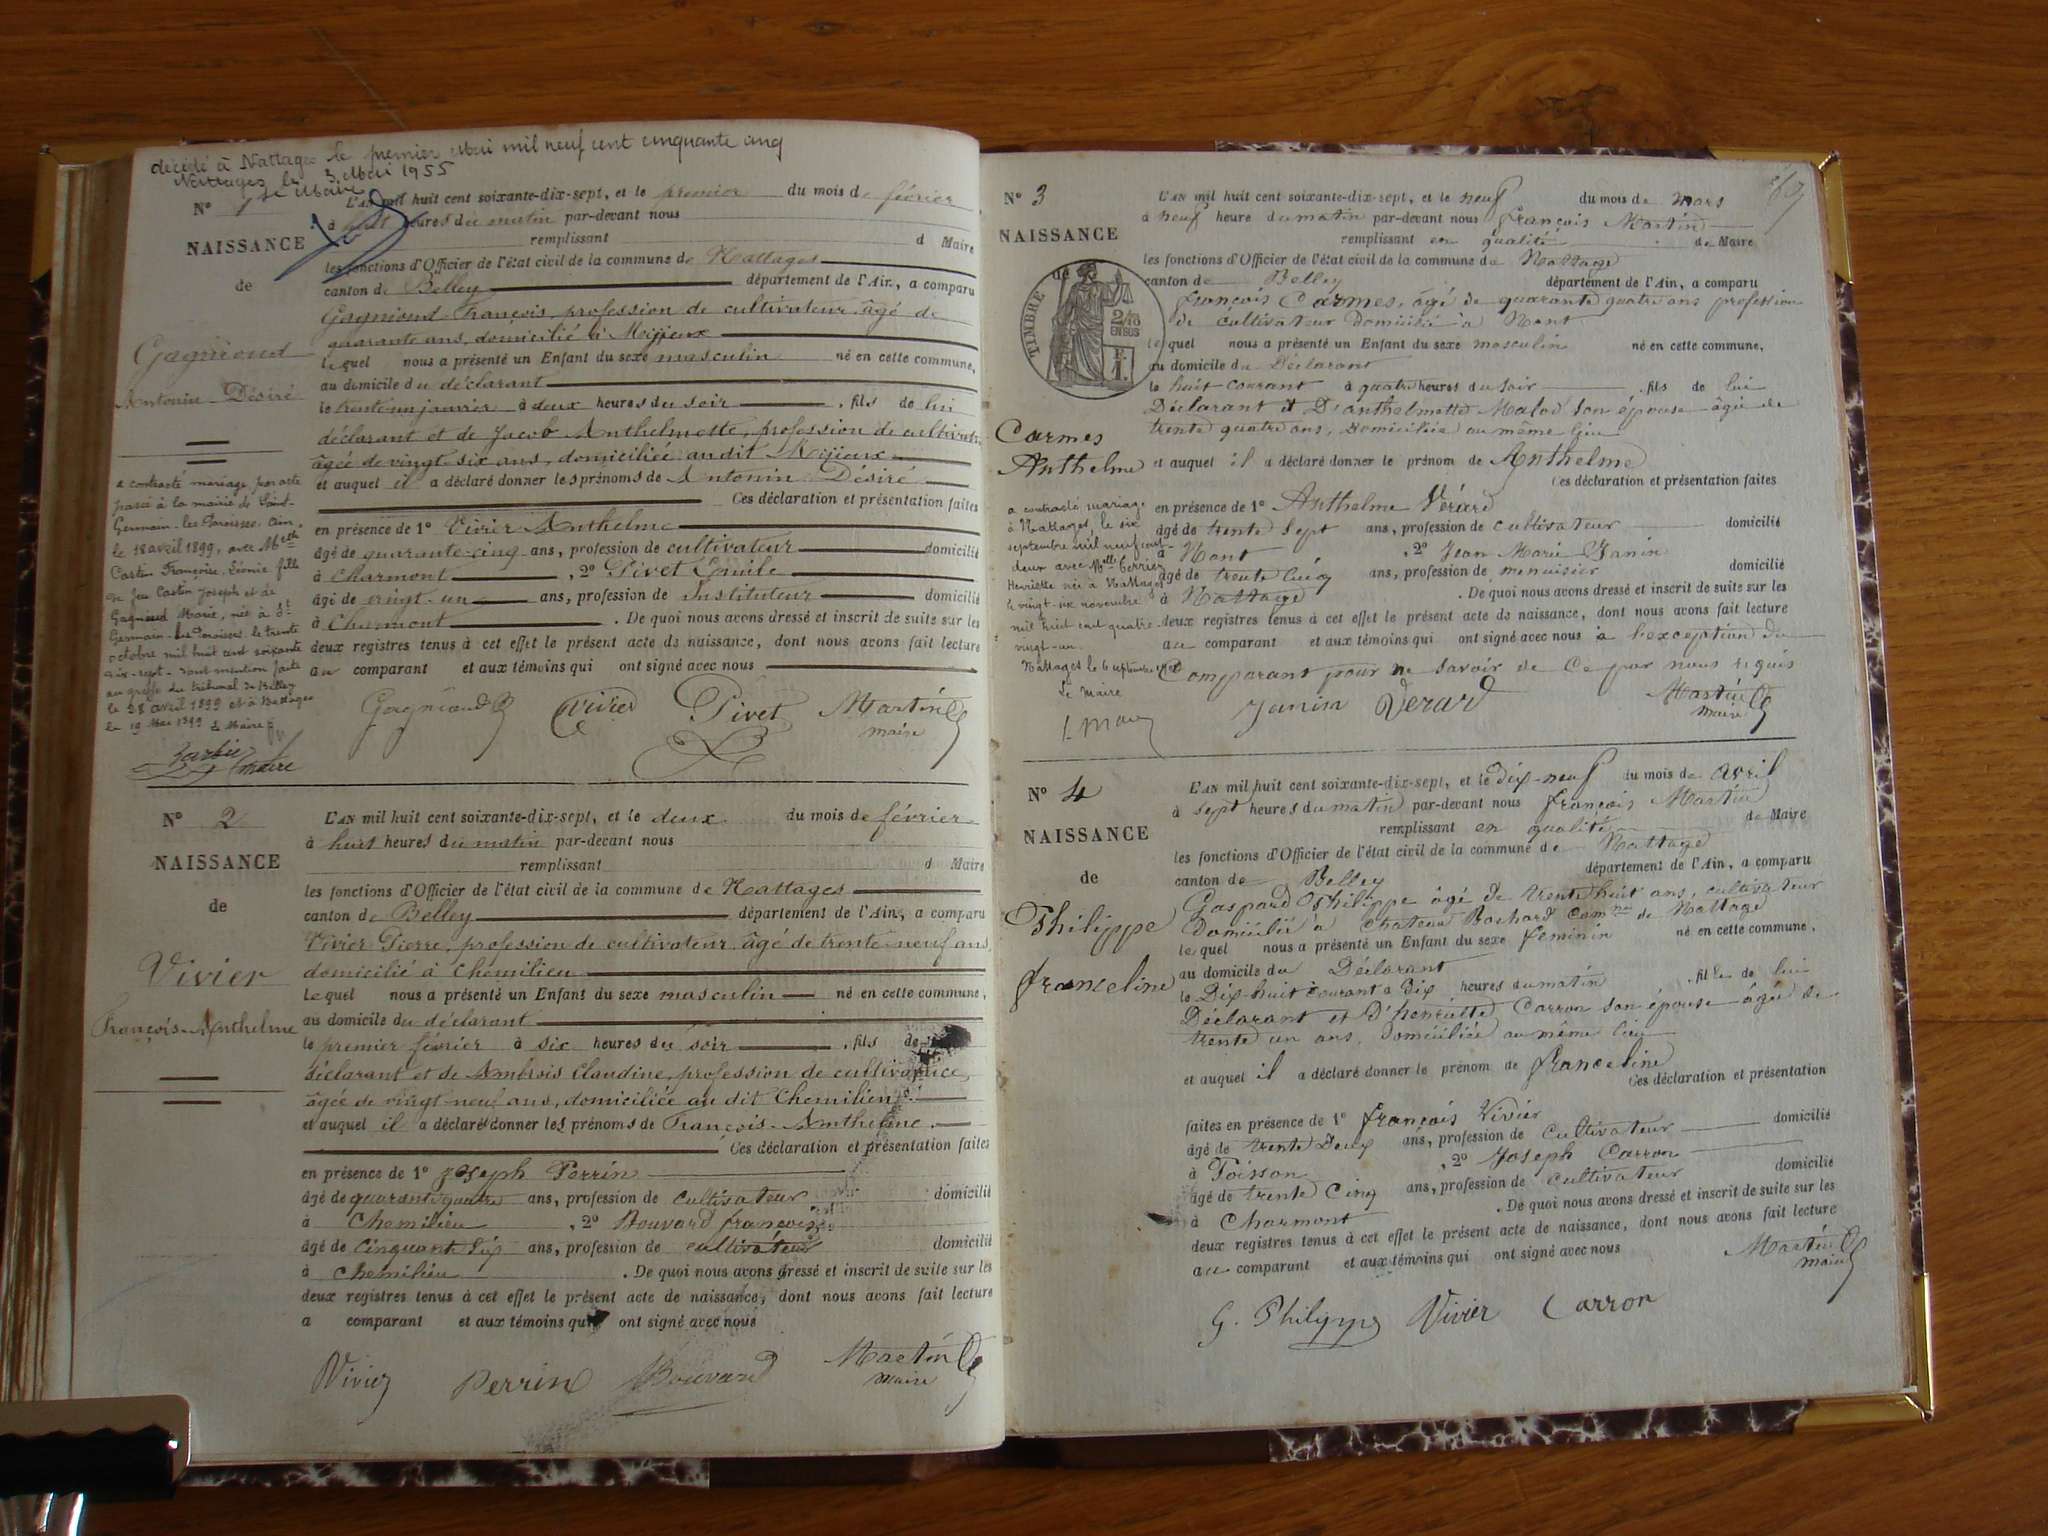 décédé à Nattages le premier Mai mil neuf cent cinquante cinq
Nattages le 3 Mai 1955
Le Maire
N° 1
NAISSANCE
de
Gagnioud
Antonin Désiré
a contracté mariage par acte
passé à la mairie de Saint-
Germain-les-Paroisses, Ain,
le 18 avril 1899, avec Melle
Castin Françoise Léonie fille
de feu Castin Joseph et de
Gagnioud Marie, née à St
Germain-les-Paroisses le trente
octobre mil huit cent soixante
dix-sept - dont mention faite
au greffe du tribunal de Belley
le 28 avril 1899 et à Nattages
le 19 Mai 1899 Le Maire
maire
L'AN mil huit cent soixante-dix-sept, et le premier du mois de février
à huit heures du matin par-devant nous
remplissant d Maire
les fonctions d'Officier de l'état civil de la commune de Nattages
canton de Belley département de l'Ain, a comparu
Gagnioud François, profession de cultivateur âgé de
quarante ans, domicilié à Mijieux
lequel nous a présenté un Enfant du sexe masculin né en cette commune,
au domicile du déclarant
le trente-un janvier à deux heures du soir, fils de lui
déclarant et de Jacob Anthelmette, profession de cultivatr
âgée de vingt-six ans, domiciliée audit Mijieux
et auquel il a déclaré donner les prénoms de Antonin Désiré
Ces déclaration et présentation faites
en présence de 1° Vivier Anthelme
âgé de quarante-cinq ans, profession de cultivateur domicilié
à Charmont, 2° Pivet Emile
âgé de vingt-un ans, profession de Instituteur domicilié
à Charmont. De quoi nous avons dressé et inscrit de suite sur les
deux registres tenus à cet effet le présent acte de naissance, dont nous avons fait lecture
au comparant et aux témoins qui ont signé avec nous
Gagnioud Vivier Pivet Martin
maire
N° 2
NAISSANCE
de
Vivier
François-Anthelme
L'AN mil huit cent soixante-dix-sept, et le deux du mois de février
à huit heures du matin par-devant nous
remplissant d Maire
les fonctions d'Officier de l'état civil de la commune de Nattages
canton de Belley département de l'Ain, a comparu
Vivier Pierre, profession de cultivateur âgé de trente-neuf ans,
domicilié à Chemilieu
lequel nous a présenté un Enfant du sexe masculin né en cette commune,
au domicile du déclarant
le premier février à six heures du soir, fils de
déclarant et de Ambrois Claudine, profession de cultivatrice,
âgée de vingt-neuf ans, domiciliée au dit Chemilieu
et auquel il a déclaré donner les prénoms de François-Anthelme.
Ces déclaration et présentation faites
en présence de 1° Joseph Perrin
âgé de quarante quatre ans, profession de cultivateur domicilié
à Chemilieu, 2° Bouvard françois
âgé de cinquante six ans, profession de cultivateur domicilié
à chemilieu. De quoi nous avons dressé et inscrit de suite sur les
deux registres tenus à cet effet le présent acte de naissance, dont nous avons fait lecture
a comparant et aux témoins qui ont signé avec nous
Vivier Perrin Bouvard Martin
maire
N° 3
NAISSANCE
de
TIMBRE
2/10
EN SUS
Carmes
Anthelme
a contracté mariage
à Nattages, le six
septembre mil neuf cent
deux avec Melle Terrier
Henriette née à Nattages
le vingt-six novembre
mil huit cent quatre-
vingt-un.
Nattages le 6 septembre 1902
Le Maire
L'AN mil huit cent soixante-dix-sept, et le neuf du mois de Mars
à neuf heure du matin par-devant nous françois Martin
remplissant en qualité de Maire
les fonctions d'Officier de l'état civil de la commune de Nattage
canton de Belley département de l'Ain, a comparu
françois Carmes, âgé de quarante quatre ans profession
de cultivateur Domicilié à Nant
lequel nous a présenté un Enfant du sexe masculin né en cette commune,
au domicile du Déclarant
le huit courant à quatre heures du soir, fils de lui
Déclarant et D'anthelmette Malod son épouse âgée de
trente quatre ans, Domiciliée au même lieu
et auquel il a déclaré donner le prénom de Anthelme
Ces déclaration et présentation faites
en présence de 1° Anthelme Vérard
âgé de trente sept ans, profession de cultivateur domicilié
à Nant, 2° Jean Marie Janin
âgé de trente cinq ans, profession de menuisier domicilié
à Nattage. De quoi nous avons dressé et inscrit de suite sur les
deux registres tenus à cet effet le présent acte de naissance, dont nous avons fait lecture
au comparant et aux témoins qui ont signé avec nous à l'exception du
Comparant pour ne savoir de Ce par nous requis
Janin Verard Martin
maire
N° 4
NAISSANCE
de
Philippe
franceline
L'AN mil huit cent soixante-dix-sept, et le dix-neuf du mois de avril
à sept heures du matin par-devant nous françois Martin
remplissant en qualité de Maire
les fonctions d'Officier de l'état civil de la commune de Nattage
canton de Belley département de l'Ain, a comparu
Gaspard Philippe âgé de trente huit ans, cultivateur
Domicilié à Chateau Bochard Comne de Nattage
lequel nous a présenté un Enfant du sexe feminin né en cette commune,
au domicile du Déclarant
le Dix-huit courant à Dix heures du matin, fille de lui
Déclarant et D'henriette Carron son épouse âgée de
trente un ans, Domiciliée au même lieu
et auquel il a déclaré donner le prénom de franceline
Ces déclaration et présentation
faites en présence de 1° françois Vivier
âgé de trente Deux ans, profession de Cultivateur domicilié
à Poisson, 2° Joseph Carron
âgé de trente Cinq ans, profession de cultivateur domicilié
à Charmont. De quoi nous avons dressé et inscrit de suite sur les
deux registres tenus à cet effet le présent acte de naissance, dont nous avons fait lecture
au comparant et aux témoins qui ont signé avec nous
Martin
maire
G. Philippe Vivier Carron